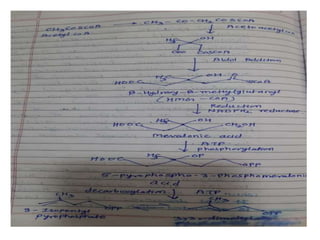 CH3COSCOA + CH3-CO-CH2COSCOA
Acetyl COA
H3C OH
COO COSCOA
Aldol Addition
HOOC
B-Hydroxy-B-methylglutaryl
(HMG-COA)
Reduction
NADPH2 reductase
HOOC H3C OH CH2OH
Mevalonic acid
ATP
phosphorylation
HOOC H3C OP OPP
5-pyrophospho-3-phosphomevalonic
acid
decarboxylation ATP
CH3 CH3
OPP OPP
3-Isopentyl
pyrophosphate